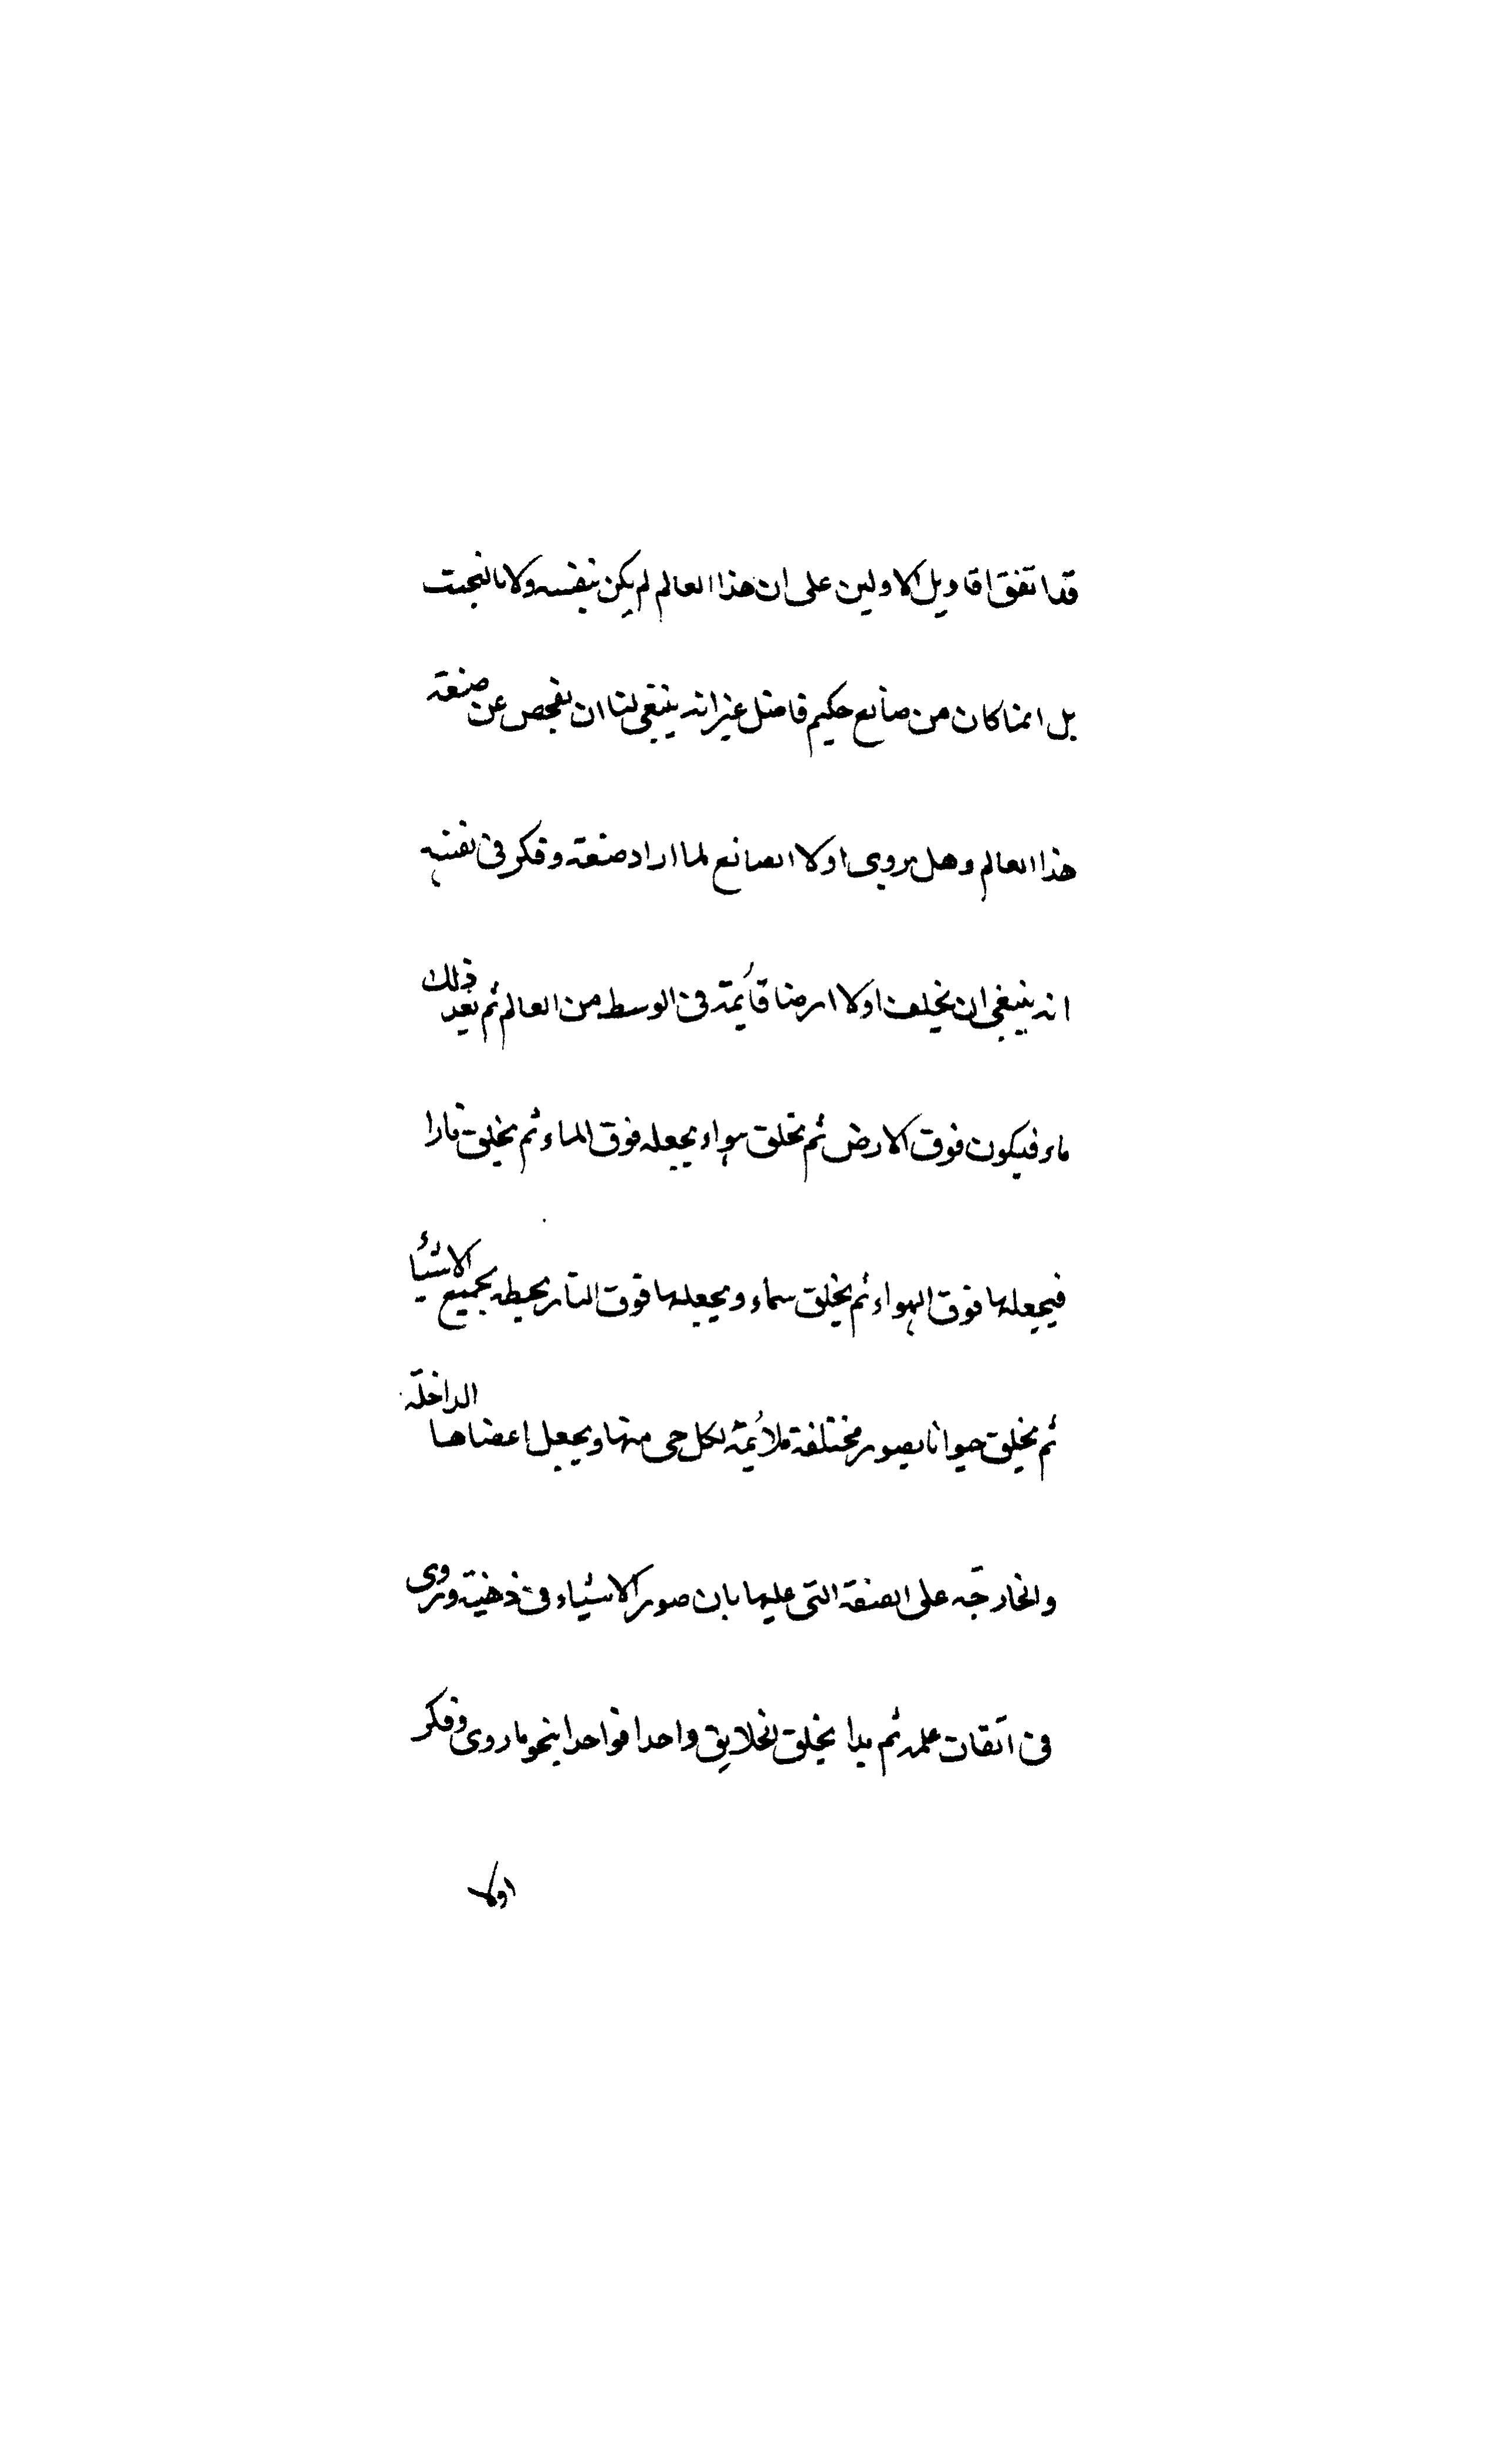 قد اتفق اقاويل الاولين على ان هذا العالم لم يكن بنفسه ولا بالبخت
بل انما كان من صانع حكيم فاضل غير انه ينبغى لنا ان نفحص عن صنعة
هذا العالم وهل يروى اولا الصانع لما اراد صنعة وفكر فى نفسه
انه ينبغى ان يخلق اولا ارضا قائمة فى الوسط من العالم ثم بعد ذلك
ماء فيكون فوق الارض ثم يخلق هواء يجعله فوق الماء ثم يخلق نارا
فيجعلها فوق الهواء ثم يخلق سماء ويجعلها فوق النار محيطه بجميع الاشياء
ثم يخلق حيوانا بصور مختلفة ملائمة لكل حى منها ويجعل اعضاها الداخلة
والخارجة على الصنفة التى عليها بان صور الاشياء فى ذهنية وروى
فى اتقان علمه ثم بدا يخلق الخلايق واحدا فواحدا بنحو ما روى وفكر
اولا